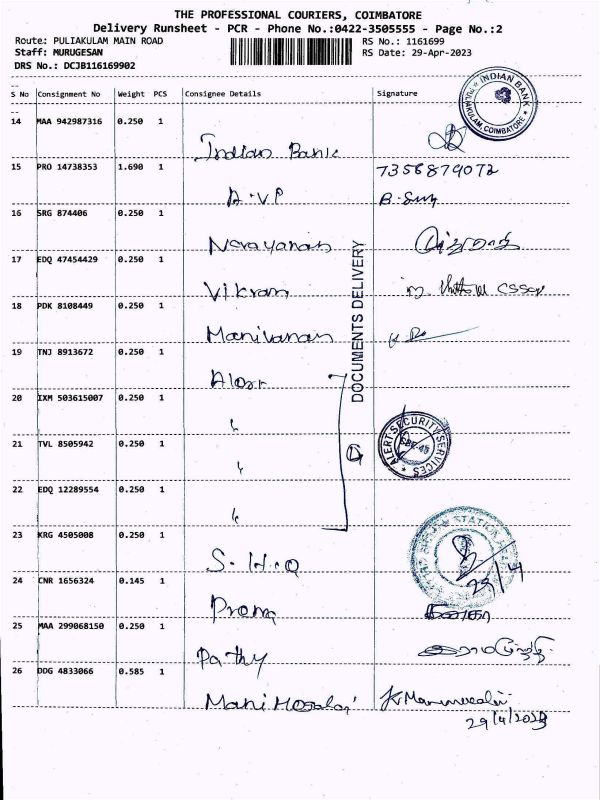 THE PROFESSIONAL COURIERS, COIMBATORE
Delivery Runsheet - PCR - Phone No.:0422-3505555 - Page No.:2
Route: PULIAKULAM MAIN ROAD RS No.: 1161699
Staff: MURUGESAN RS Date: 29-Apr-2023
DRS No.: DCJB116169902
S No Consignment No Weight PCS Consignee Details Signature
INDIAN BANK
PULIAKULAM, COIMBATORE
14 MAA 942987316 0.250 1
Indian Bank
15 PRO 14738353 1.690 1 7356879072
A.VP B.
16 SRG 874406 0.250 1
Narayanan
17 EDQ 47454429 0.250 1
Vikram
18 PDK 8108449 0.250 1
Manivanan
DOCUMENTS DELIVERY
19 TNJ 8913672 0.250 1
20 IXM 503615007 0.250 1
ALERT SECURITY SERVICES
21 TVL 8505942 0.250 1
22 EDQ 12289554 0.250 1
23 KRG 4505008 0.250 1
STATION
S.H.O 29/4
24 CNR 1656324 0.145 1
Prema
25 MAA 299068150 0.250 1
Pathy
26 DDG 4833066 0.585 1
29/4/2023